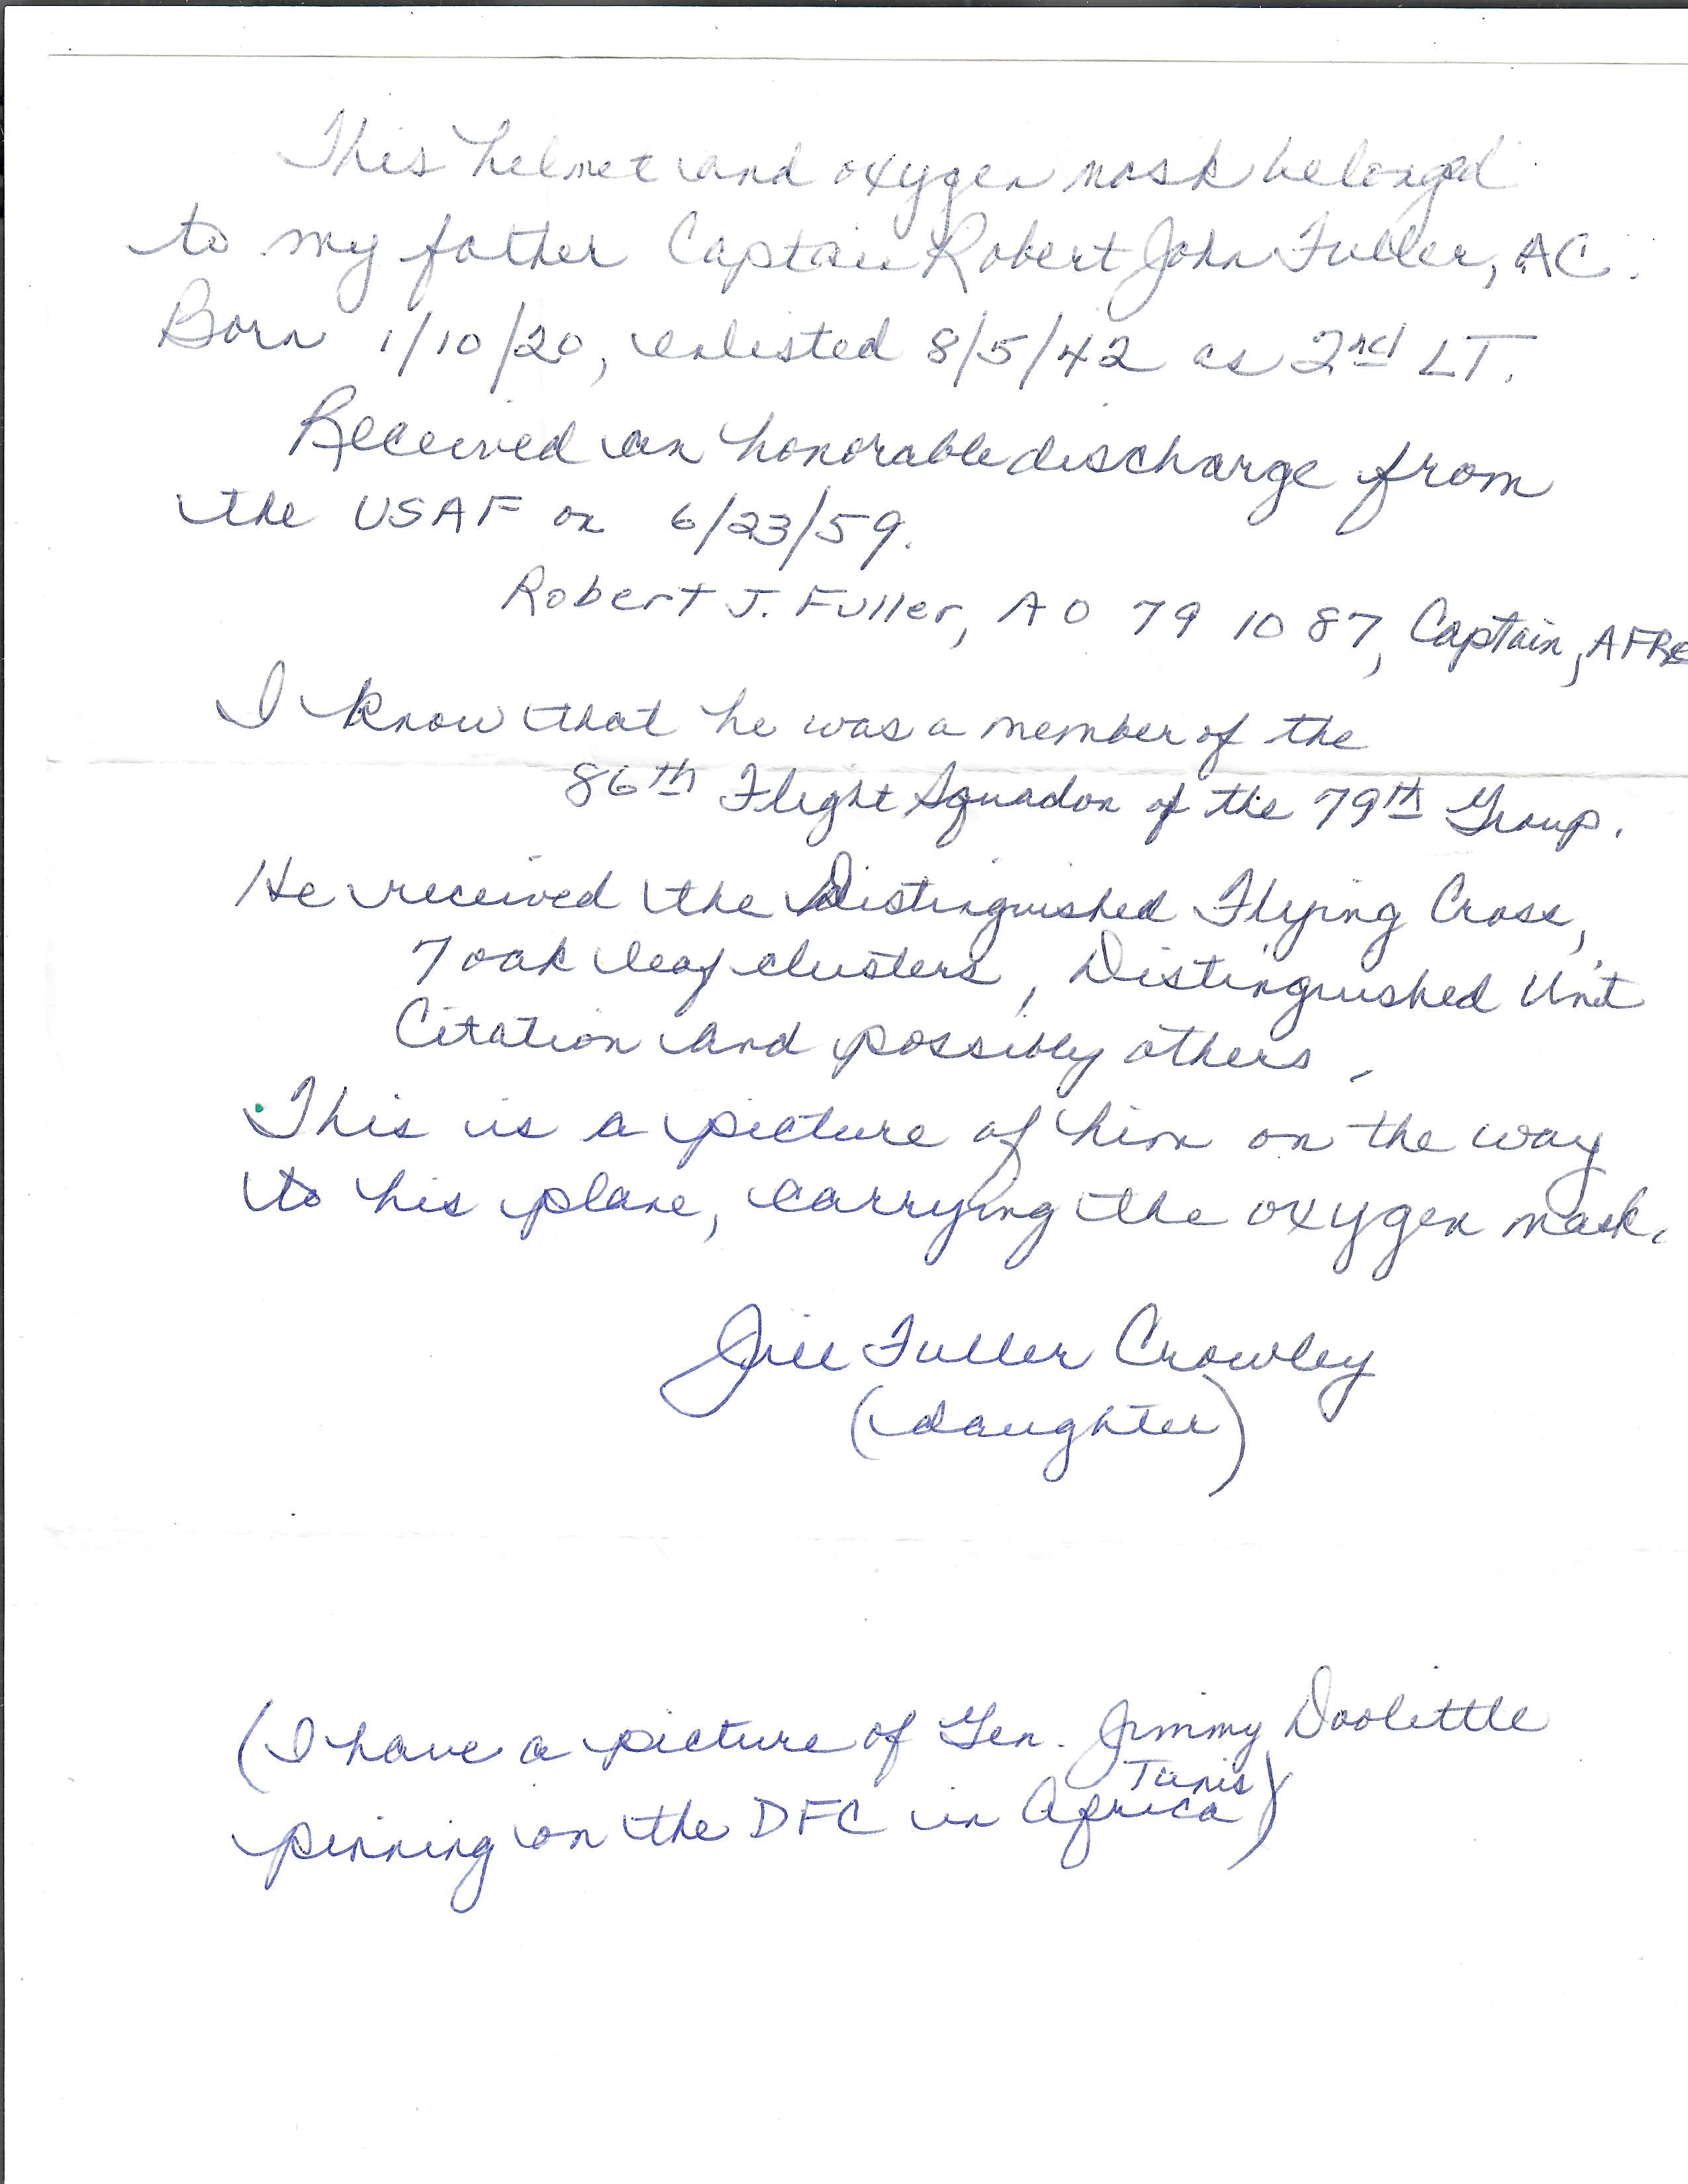 This helmet and oxygen mask belonged
to my father Captain Robert John Fuller, AC.
Born 1/10/20, enlisted 8/5/42 as 2nd LT.
Received an honorable discharge from
the USAF on 6/23/59.
Robert J. Fuller, AO 79 10 87, Captain, AFRE
I know that he was a member of the
86th Flight Squadon of the 79th Group.
He received the Distinguished Flying Cross,
7 oak leaf clusters, Distinguished Unit
Citation and possibly others.
This is a picture of him on the way
to his plane, carrying the oxygen mask.
Jill Fuller Crowley
(daughter)
(I have a picture of Gen. Jimmy Doolittle
Tunis
pinning on the DFC in Africa)